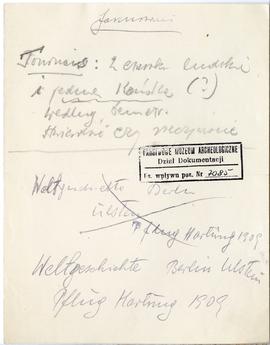 Tononice: 2 czaszki ludzkie
i jedna Końska (?)
według
stwierdzić czy
PAŃSTWOWE MUZEUM ARCHEOLOGICZNE
Dział Dokumentacji
Ks. wpływu poz. Nr 7085
Weltgeschichte Berlin
Ulstein
Pflug Hartung 1909
Weltgeschichte Berlin Ulstein
Pflug Hartung 1909